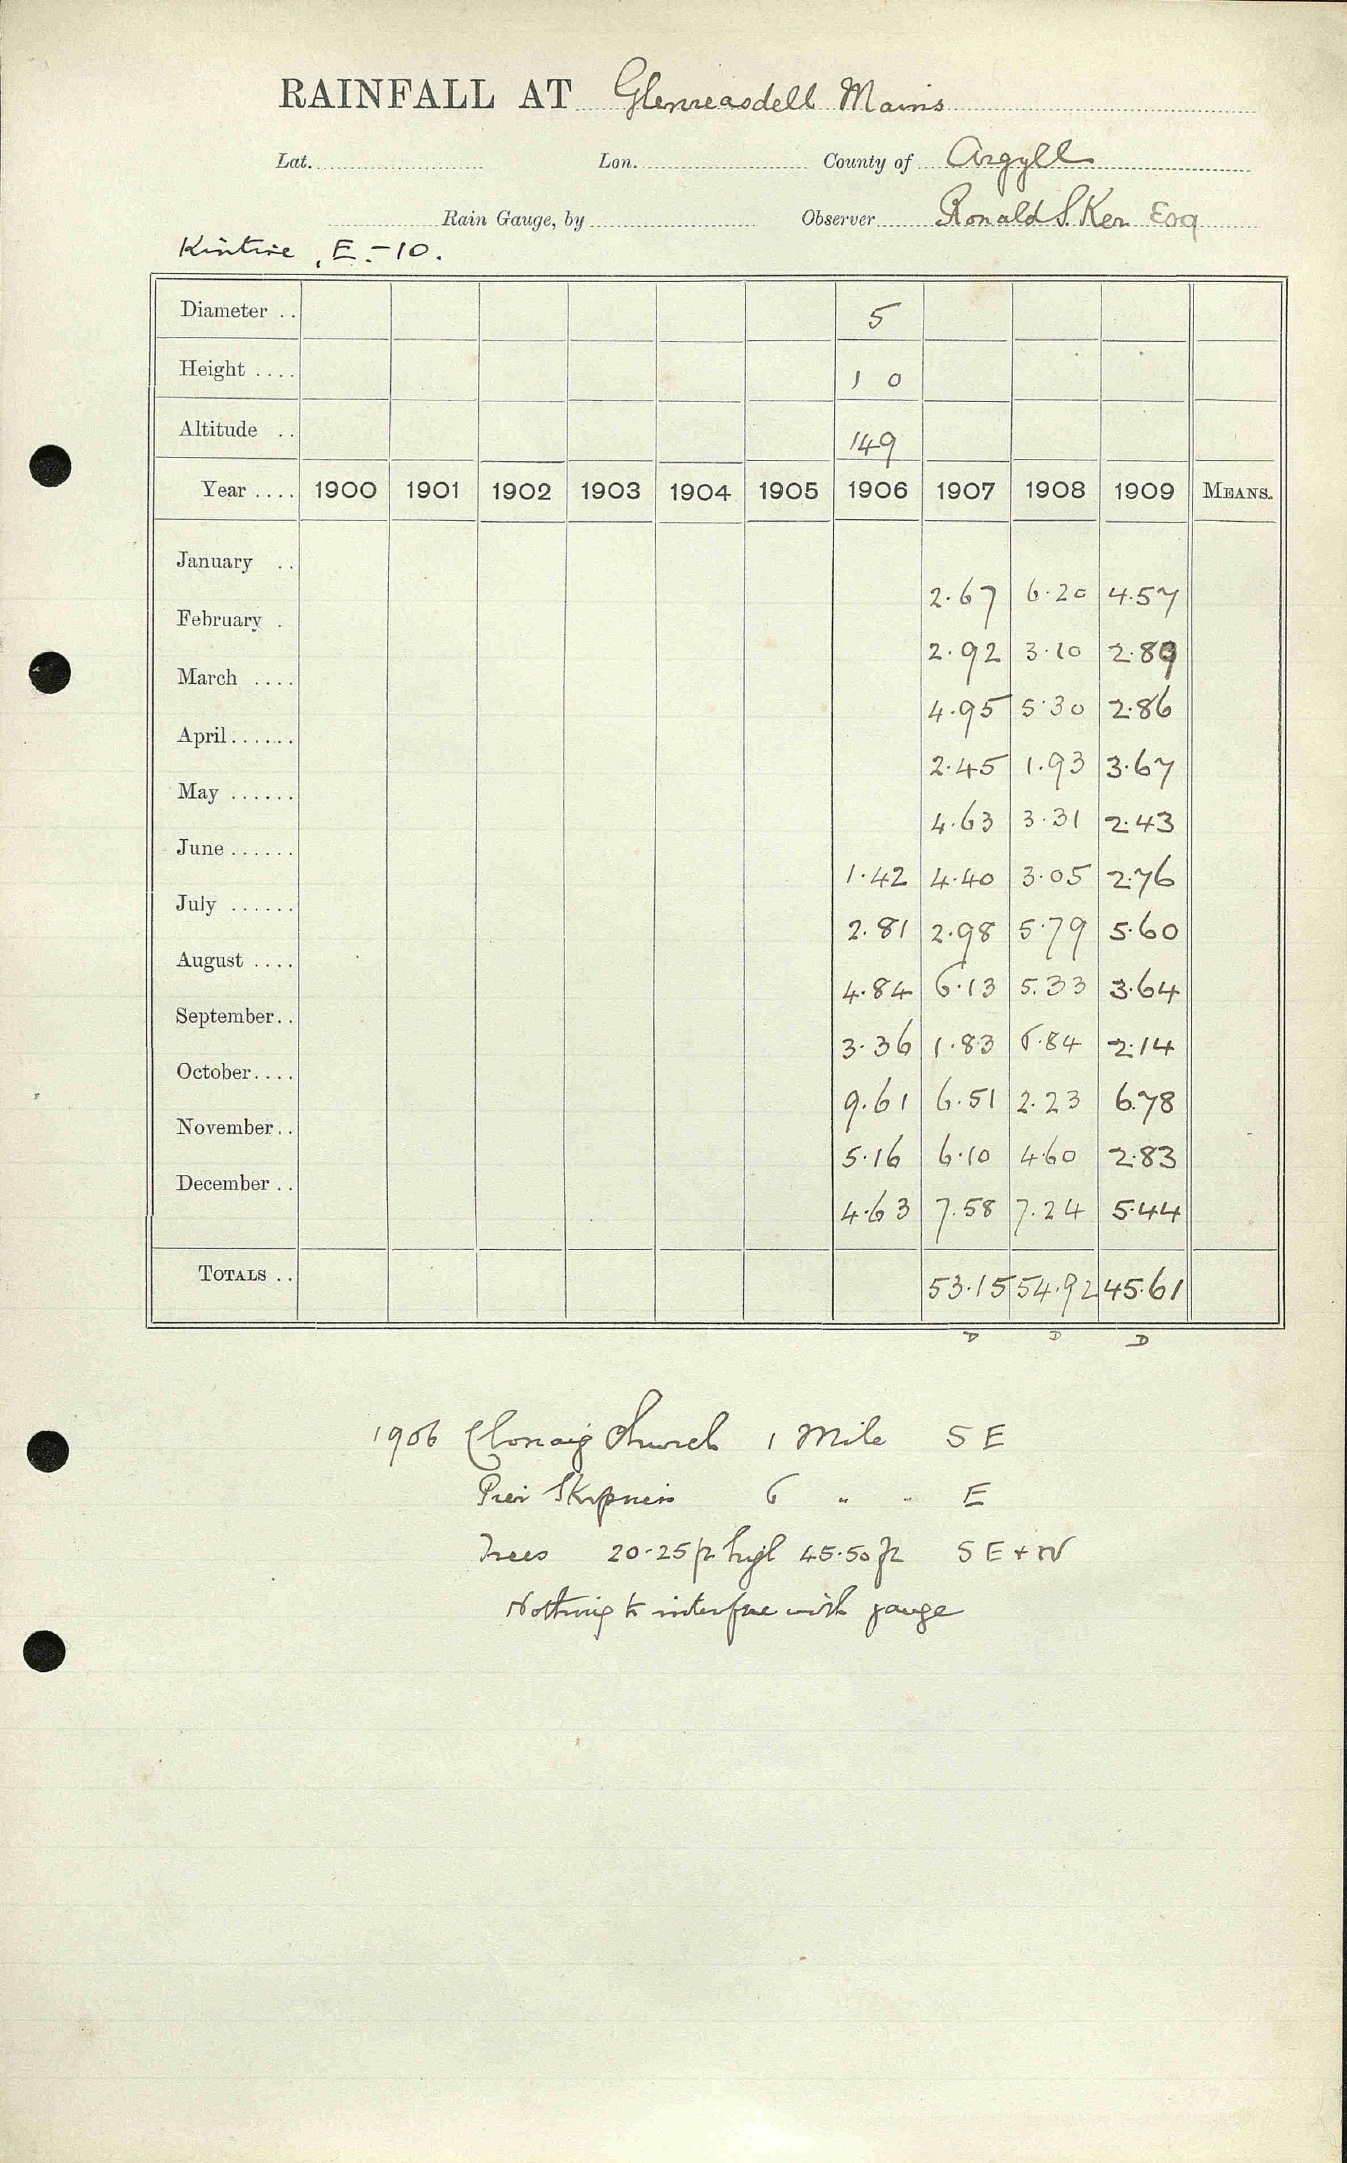 RAINFALL AT Glenreasdell Mains
Lat. Lon. County of Argyll
Rain Gauge, by Observer Ronald S. Ker Esq
Kintire, E.-10.
Diameter .. 5
Height .... 1 0
Altitude .. 149
Year .... 1900 1901 1902 1903 1904 1905 1906 1907 1908 1909 MEANS.
January .. 2.67 6.20 4.57
February . 2.92 3.10 2.89
March .... 4.95 5.30 2.86
April ...... 2.45 1.93 3.67
May ...... 4.63 3.31 2.43
June ...... 1.42 4.40 3.05 2.76
July ...... 2.81 2.98 5.79 5.60
August .... 4.84 6.13 5.33 3.64
September .. 3.36 1.83 6.84 2.14
October .... 9.61 6.51 2.23 6.78
November .. 5.16 6.10 4.60 2.83
December .. 4.63 7.58 7.24 5.44
TOTALS .. 53.15 54.92 45.61
D D D
1906 Clonaig Church 1 Mile S E
Pier Skipness 6 " " E
Trees 20-25 ft high 45-50 ft S E + N
Nothing to interfere with gauge